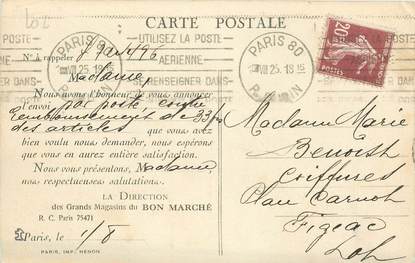 CARTE POSTALE
LA POSTE
AÉRIENNE
ER DANS
PARIS 80
VIII 25. 18 15
R. DUPIN
UTILISEZ LA POSTE
AÉRIENNE
RENSEIGNER DANS
PARIS 80
VIII 25. 18 15
20c
N° à rappeler
Madame,
Nous avons l'honneur de vous annoncer
l'envoi par poste, contre
remboursement de 33
des articles que vous avez
bien voulu nous demander, nous espérons
que vous en aurez entière satisfaction.
Nous vous présentons, Madame,
nos respectueuses salutations.
LA DIRECTION
des Grands Magasins du BON MARCHÉ
R. C. Paris 75471
Paris, le 1/8
PARIS, IMP. HÉNON.
Madame Marie
Benoist
Coiffures
Place Carnot
Figeac
Lot